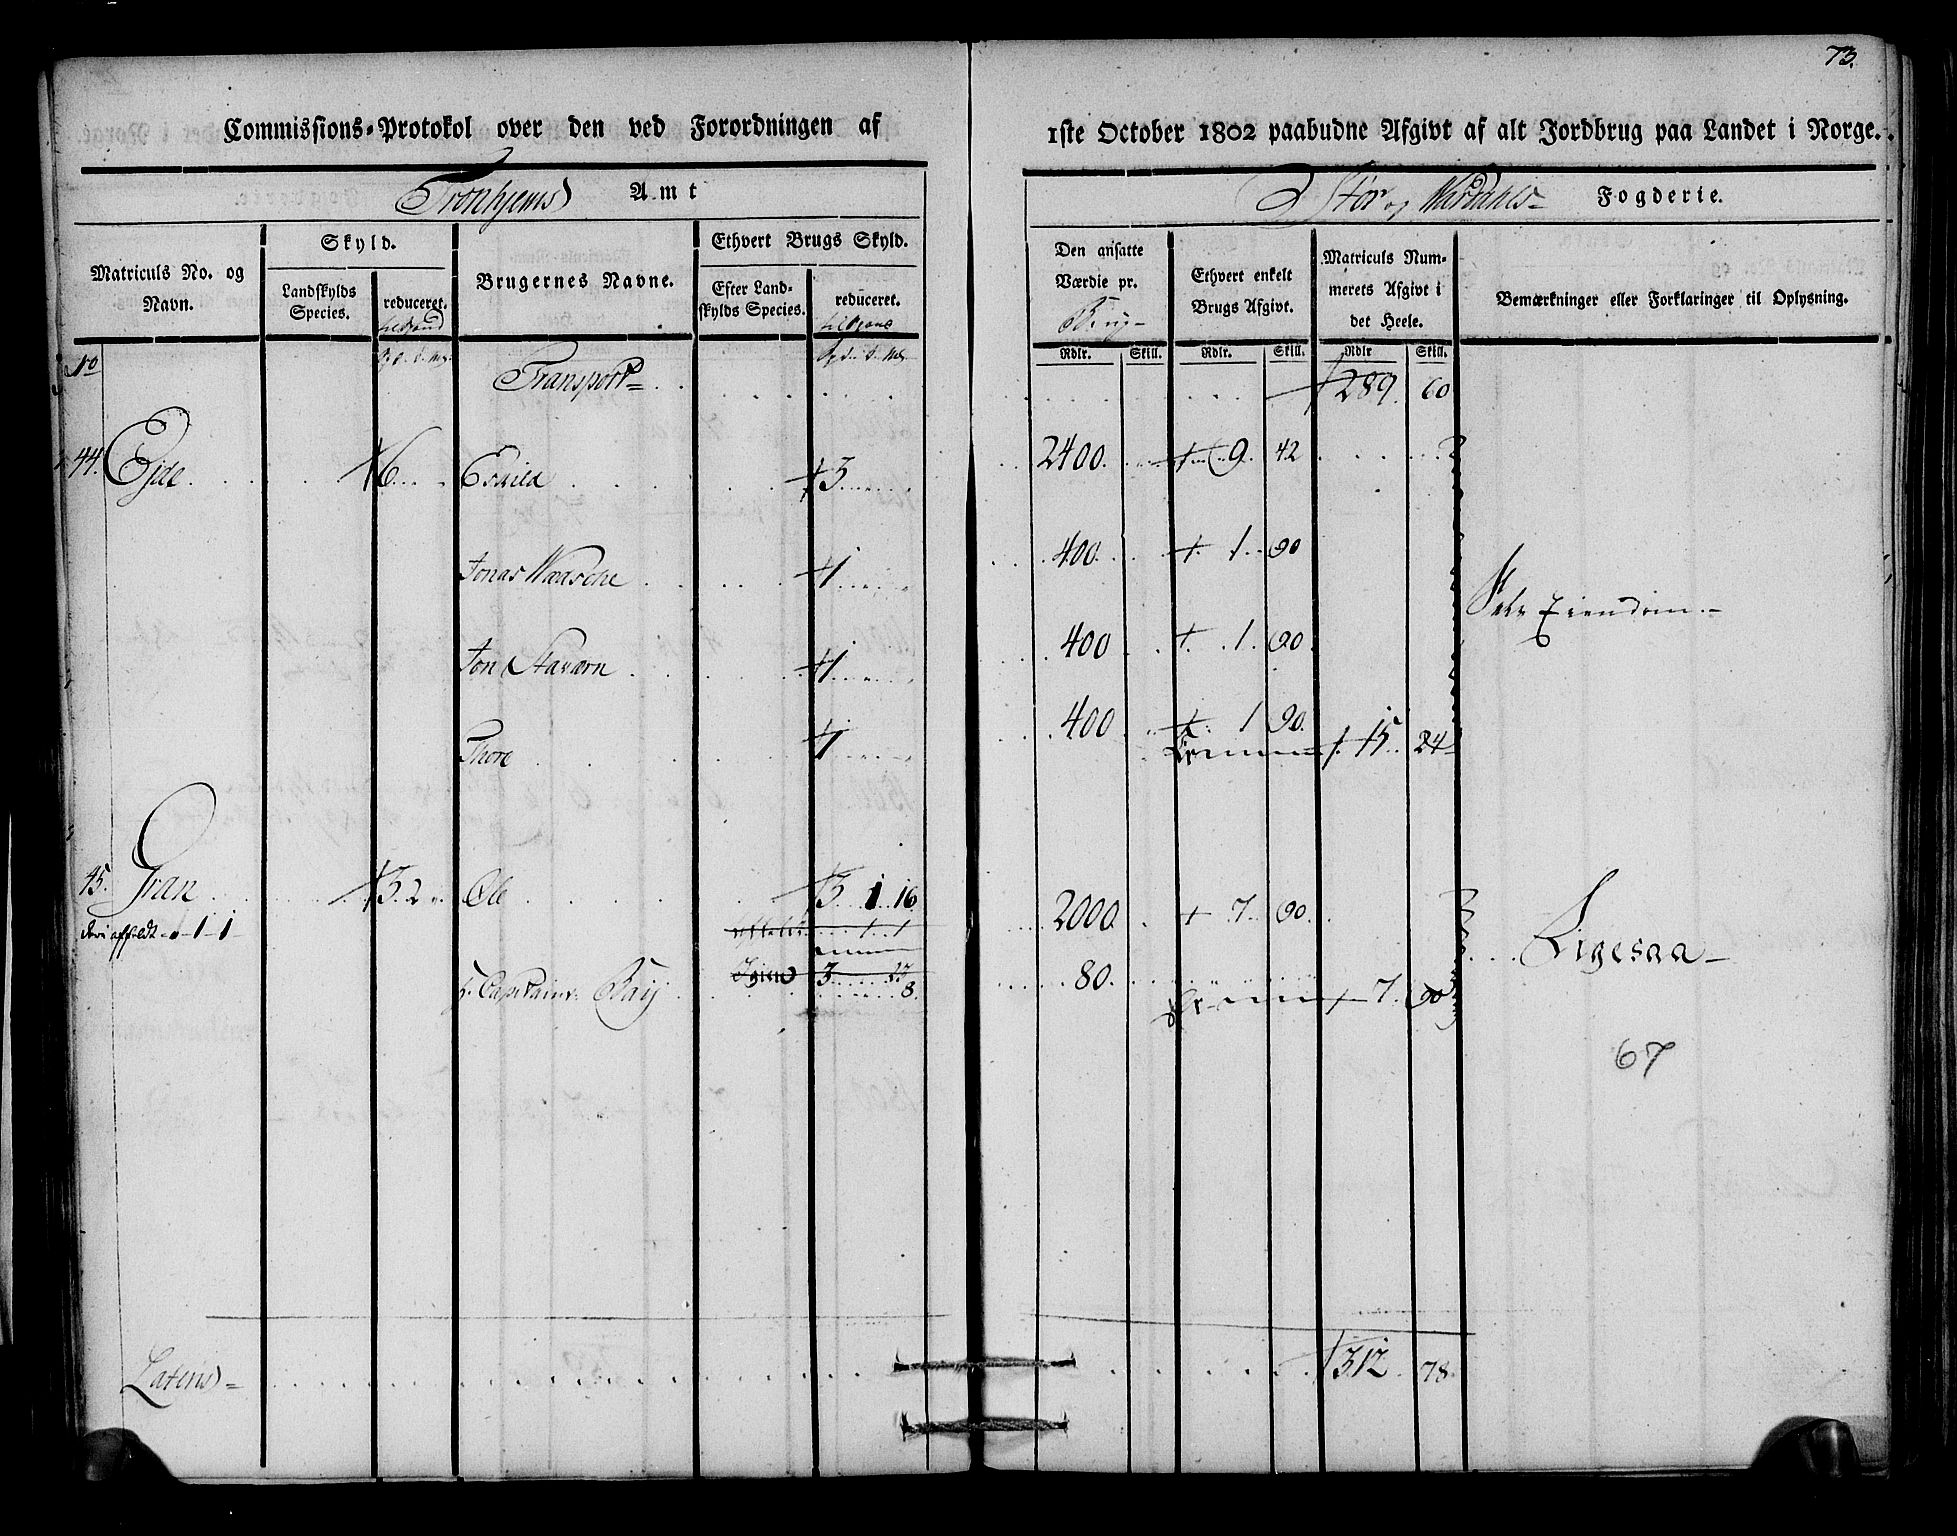 73.
Commissions-Protokol over den ved Forordningen af 1ste October 1802 paabudne Afgivt af alt Jordbrug paa Landet i Norge.
Tronhjems Amt
Stør og Værdahls Fogderie.
Matriculs No. og Navn.
Skyld.
Landskylds Species.
reduceret.
Brugernes Navne.
Ethvert Brugs Skyld.
Efter Landskylds Species.
reduceret.
Den ansatte Værdie pr. Brug
Ethvert enkelt Brugs Afgivt.
Matriculs Nummerets Afgivt i det Heele.
Bemærkninger eller Forklaringer til Oplysning.
Rdlr. Skill. Rdlr. Skill. Rdlr Skill.
No
Transport 289 60
44. Eide 6 Eskild 3 2400 9 42
Jonas 1 400 1 90
Selv Eiendom
Jon 1 400 1 90
Thore 1 400 1 90
15 24
45. Gran 3 2 Ole 3 1 16 2000 7 90 Ligesaa
1 1
Igien 3
H. Capitaine 8 80 7 90
67
Lateris 312 78